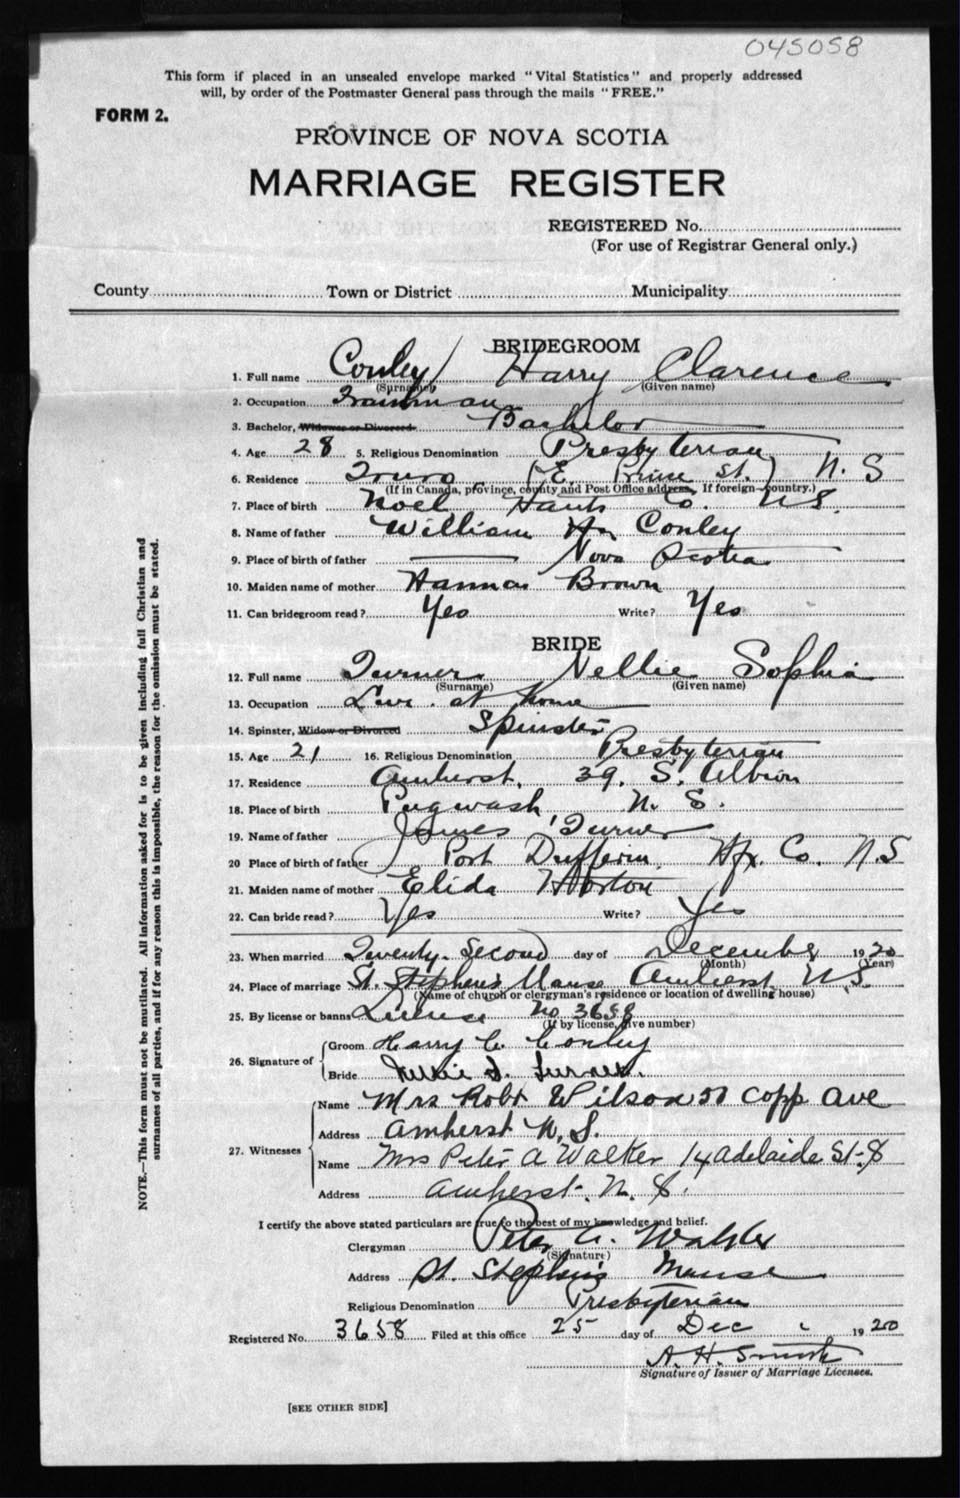 045058
This form if placed in an unsealed envelope marked "Vital Statistics" and properly addressed
will, by order of the Postmaster General pass through the mails "FREE."
FORM 2.
PROVINCE OF NOVA SCOTIA
MARRIAGE REGISTER
REGISTERED No.
(For use of Registrar General only.)
County Town or District Municipality
BRIDEGROOM
1. Full name Conley Harry Clarence
(Surname) (Given name)
2. Occupation Trainman
3. Bachelor, Widower or Divorced Bachelor
4. Age 28 5. Religious Denomination Presbyterian
6. Residence Truro (E. Prince St.) N. S
(If in Canada, province, county and Post Office address. If foreign country.)
7. Place of birth Noel Hants Co. N.S.
8. Name of father William Conley
9. Place of birth of father Nova Scotia
10. Maiden name of mother Hannah Brown
11. Can bridegroom read? Yes Write? Yes
BRIDE
12. Full name Turner Nellie Sophia
(Surname) (Given name)
13. Occupation at home
14. Spinster, Widow or Divorced Spinster
15. Age 21 16. Religious Denomination Presbyterian
17. Residence Amherst, 39, S. Albion
18. Place of birth Pugwash N. S.
19. Name of father James Turner
20 Place of birth of father Port Dufferin, Hfx. Co. N.S
21. Maiden name of mother Elida Horton
22. Can bride read? Yes Write? Yes
23. When married Twenty-Second day of December 1920
(Month) (Year)
24. Place of marriage St. Stephen's Manse Amherst N.S.
(Name of church or clergyman's residence or location of dwelling house)
25. By license or banns License No 3658
(If by license, give number)
26. Signature of Groom Harry C. Conley
Bride Nellie S. Turner.
27. Witnesses Name Mrs Robt Wilson 50 Copp Ave
Address Amherst N.S.
Name Mrs Peter A Walker 14 Adelaide St. S
Address Amherst, N. S.
I certify the above stated particulars are true to the best of my knowledge and belief.
Clergyman Peter A. Walker
(Signature)
Address St. Stephen's Manse
Religious Denomination Presbyterian
Registered No. 3658 Filed at this office 25 day of Dec 1920
A. H. Smith
Signature of Issuer of Marriage Licenses.
[SEE OTHER SIDE]
NOTE.—This form must not be mutilated. All information asked for is to be given including full Christian and
surnames of all parties, and if for any reason this is impossible, the reason for the omission must be stated.